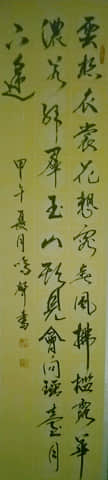 雲想衣裳花想容春風拂檻露華
濃若非羣玉山頭見會向瑤臺月
下逢
甲午夏月鳴書